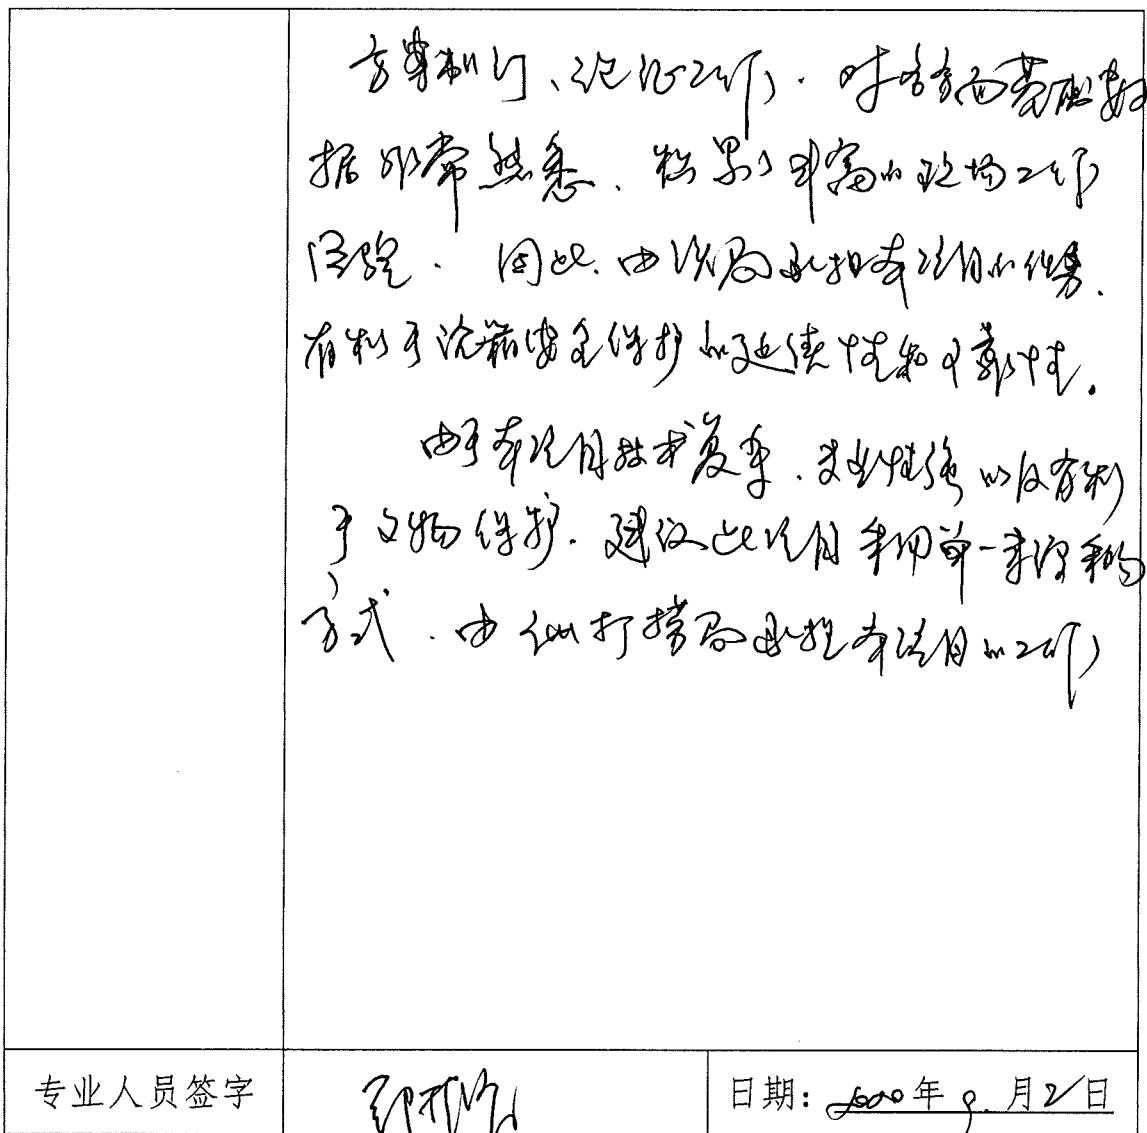 方案制订、论证工作，对各方面基础数
据非常熟悉、积累了丰富的现场工作
经验。因此，由该局承担本项目的任务，
有利于沉船安全保护的延续性和可靠性。
由于本项目技术复杂、专业性强以及有利
于文物保护，建议此项目采用单一来源采购
方式，由打捞局承担本项目的工作
专业人员签字
日期：年 月 日